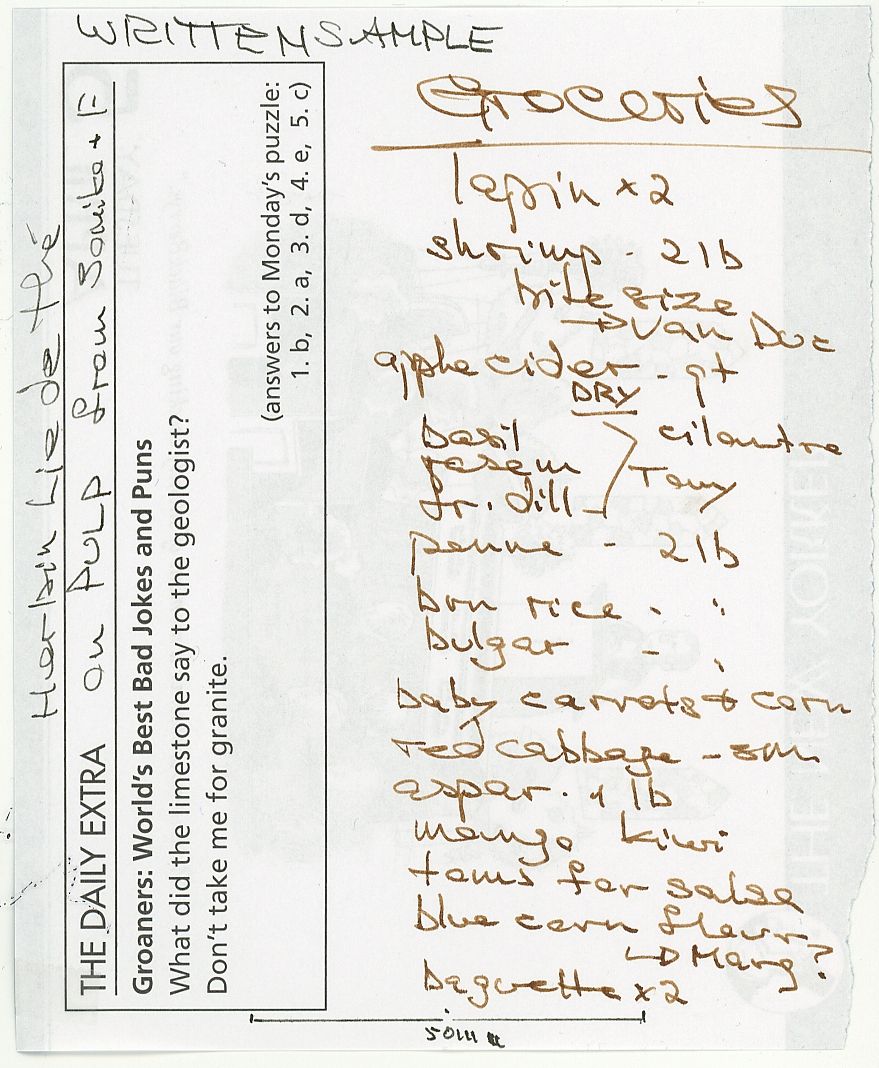 WRITTEN SAMPLE
Groceries
lapin x 2
shrimp - 2 lb
bite size
→ Van Duc
apple cider - qt
DRY
basil
cilantro
rosem
Tony
fr. dill
penne - 2 lb
brn rice - "
bulgar - "
baby carrots + corn
red cabbage - sm
aspar. 1 lb
mango kiwi
toms for salsa
blue corn flour
→ Marg?
baguette x 2
Herbin Lie de Thé
on PULP from Sonita + F
THE DAILY EXTRA
Groaners: World's Best Bad Jokes and Puns
What did the limestone say to the geologist?
Don't take me for granite.
(answers to Monday's puzzle:
1. b, 2. a, 3. d, 4. e, 5. c)